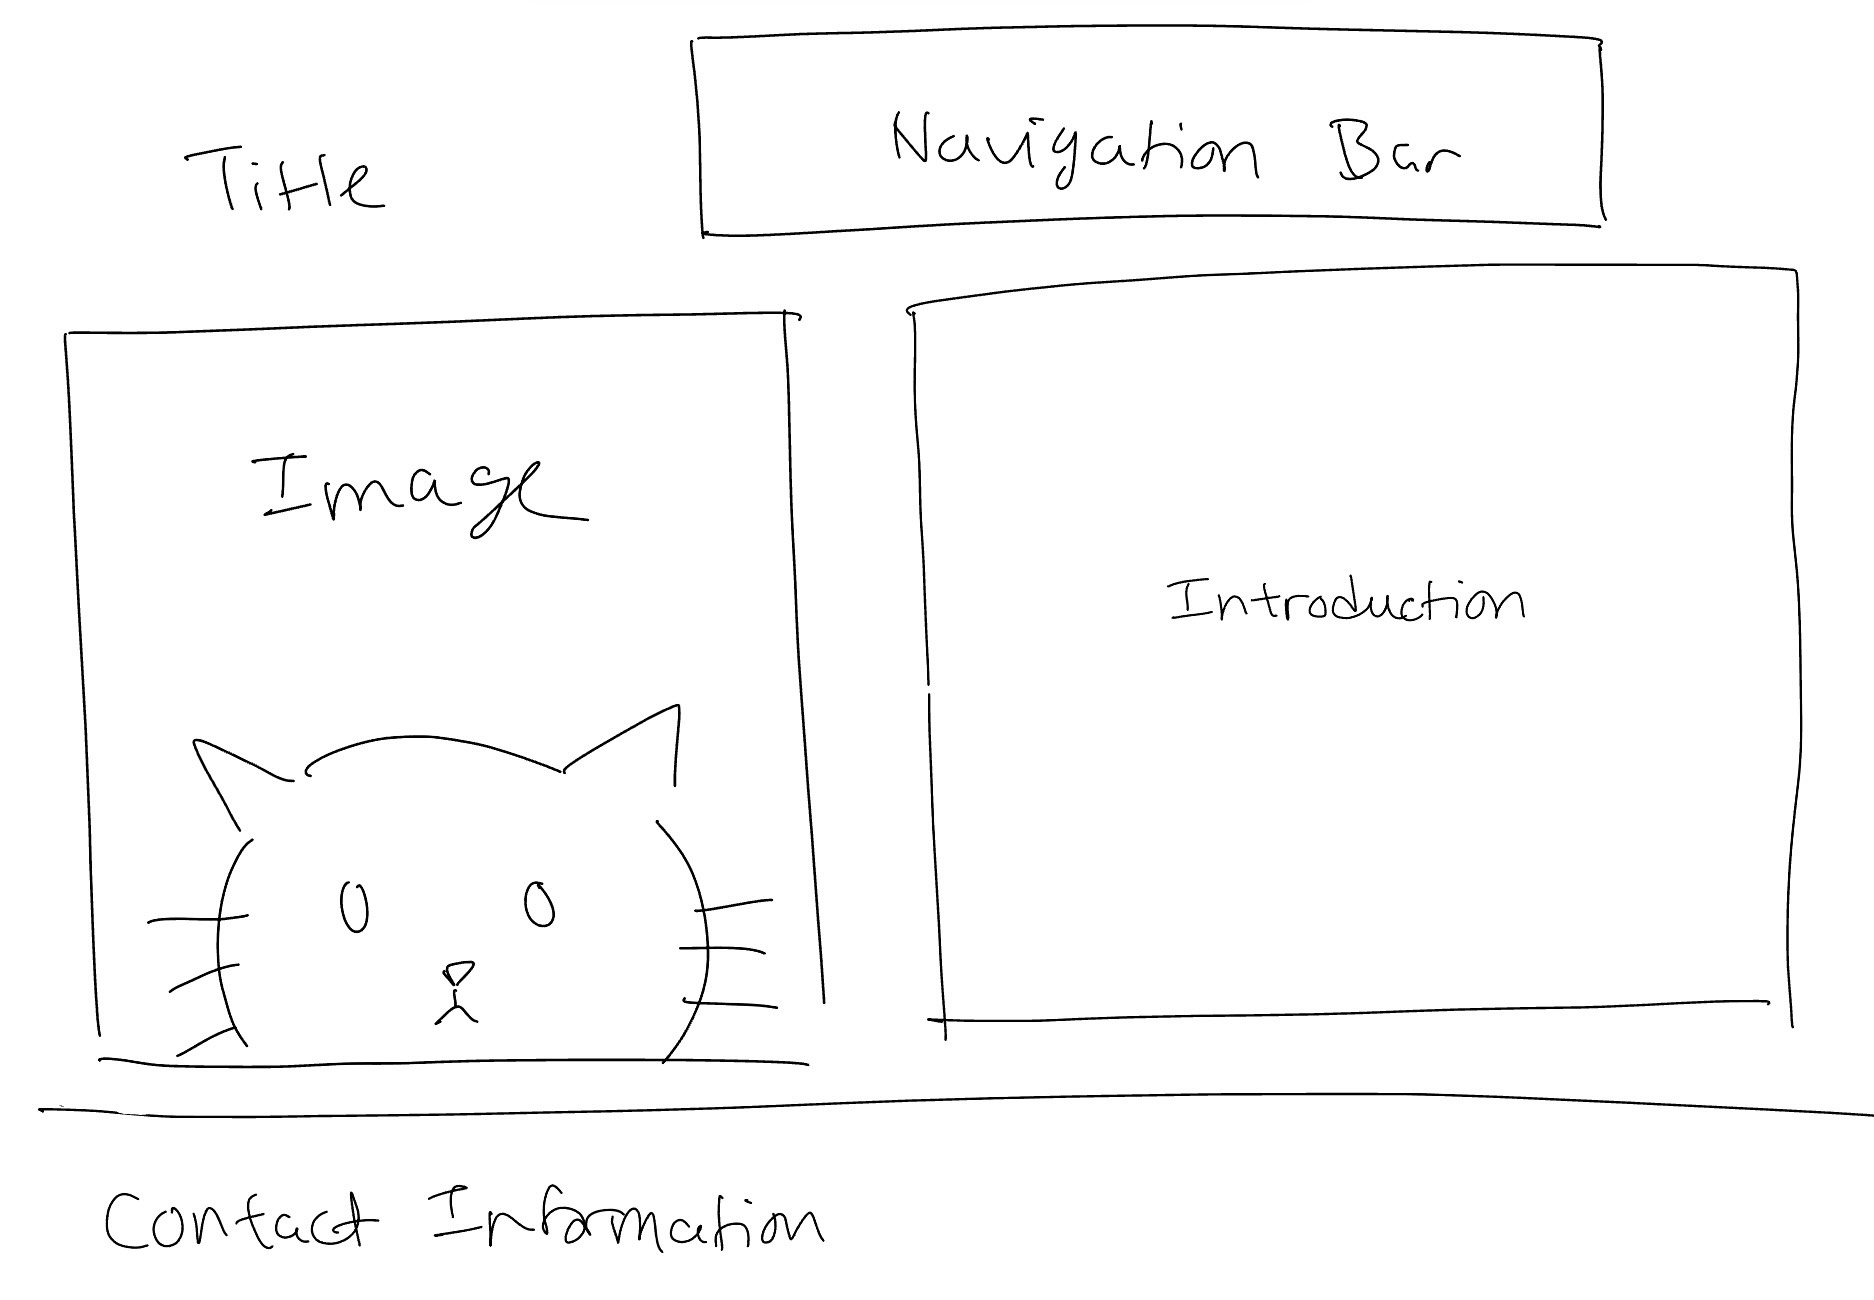 Title
Navigation Bar
Image
Introduction
Contact Information